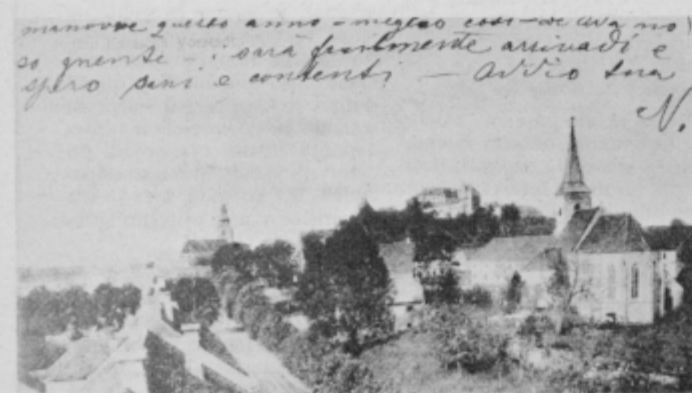 manovre questo anno - meglio cosi - de Ava no
so gnente - . sarà finalmente arrivadi e
spero sani e contenti - Addio tua
N.